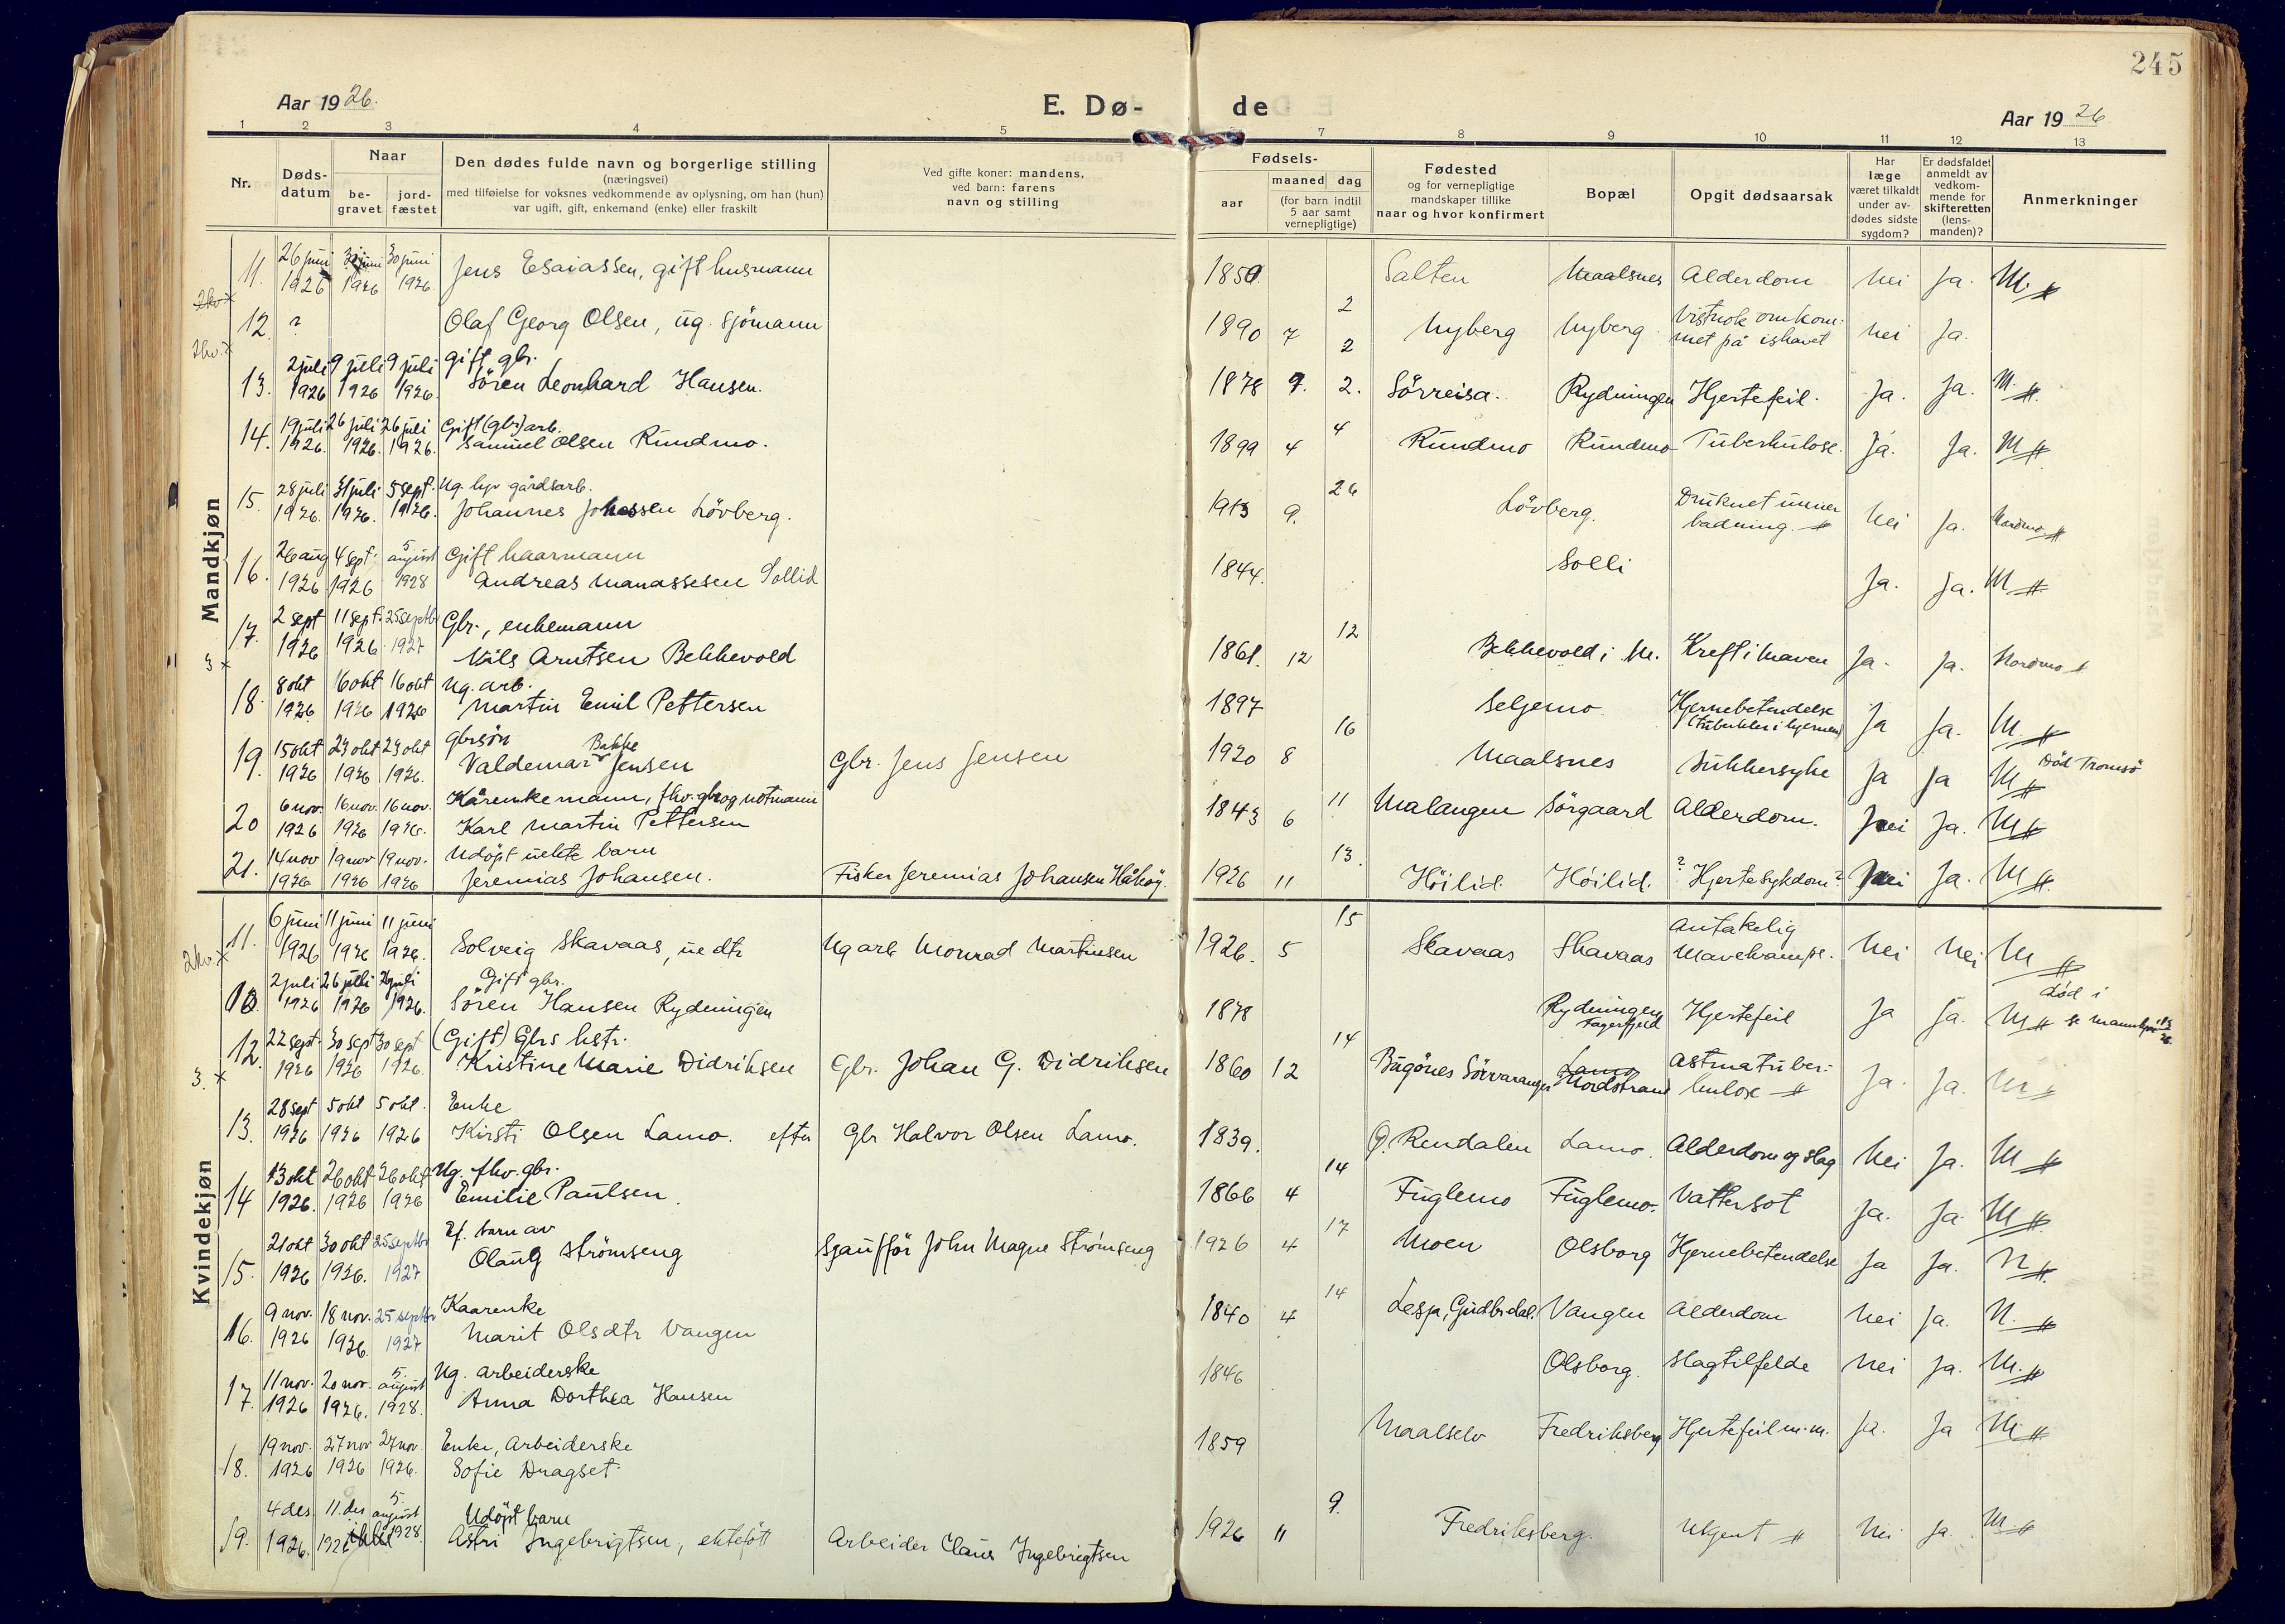 245
Aar 1926.
E. Dø- de
Aar 1926
1 2 3 4 5 7 8 9 10 11 12 13
Nr.
Døds-
datum
Naar
be-
gravet
jord-
fæstet
Den dødes fulde navn og borgerlige stilling
(næringsvei)
med tilføielse for voksnes vedkommende av oplysning, om han (hun)
var ugift, gift, enkemand (enke) eller fraskilt
Ved gifte koner: mandens,
ved barn: farens
navn og stilling
Fødsels-
aar
maaned dag
(for barn indtil
5 aar samt
vernepligtige)
Fødested
og for vernepligtige
mandskaper tillike
naar og hvor konfirmert
Bopæl
Opgit dødsaarsak
Har
læge
været tilkaldt
under av-
dødes sidste
sygdom?
Er dødsfaldet
anmeldt av
vedkom-
mende for
skifteretten
(lens-
manden)?
Anmerkninger
Mandkjøn
11. 26 juni 1926 30 juni 1926 30 juni 1926 Jens Esaiassen, gift husmann 1850. Salten Maalsnes Alderdom Nei Ja. M.
12. ? Olaf Georg Olsen, ug. sjömann 1890 7 2 Nyberg Nyberg Vistnok omkom-
met på ishavet Nei Ja.
13. 2 juli 1926 9 juli 1926 9 juli 1926. gift gbr.
Sören Leonhard Hansen. 1878 7. 2. Sörreisa. Rydningen Hjertefeil. Ja. Ja. M.
14. 19 juli 1926. 26 juli 1926. 26 juli 1926. Gift (gbr) arb.
Samuel Olsen Rundmo. 1899 4 4 Rundmo Rundmo Tuberkulose. Ja. Ja. M
15. 28 juli 1926. 31 juli 1926. 5 sept. 1926. Ug. hjv gårdsarb.
Johannes Johassen Lövberg. 1913 9. 26 Lövberg. Druknet under
badning. Nei Ja. Nordmo
16. 26 aug 1926 4 sept. 1926 5 august 1928 Gift kaarmann
Andreas Manassesen Sollid 1844. Solli Ja. Ja. M
17. 2 sept 1926 11 sept. 1926 25 septbr 1927 Gbr., enkemann
Nils Arntsen Bekkevold 1861. 12 12 Bekkevold i M. Kreft i maven Ja. Ja. Nordmo
18. 8 okt 1926 16 okt 1926 16 okt 1926 Ug. arb.
Martin Emil Pettersen 1897 Selgemo Hjernebetendelse
(tuberkler i hjernen) Ja Ja. M.
19. 15 okt 1926 23 okt 1926 23 okt 1926. gbrsön
Valdemar Bakke Jensen Gbr. Jens Jensen 1920 8 16 Maalsnes Sukkersyke Ja Ja M Död Tromsö
20 6 nov. 1926 16 nov. 1926 16 nov. 1926. Kårenkemann, fhv. gbr og notmann
Karl Martin Pettersen 1843 6 11 Malangen Sörgaard Alderdom. Nei Ja. M
21. 14 nov 1926 19 nov 1926 19 nov. 1926 Udöpt uekte barn
Jeremias Johansen. Fisker Jeremias Johansen Håköy. 1926 11 13. Höilid. Höilid. ? Hjertesykdom? Nei Ja. M
Kvindekjøn
11. 6 juni 1926 11 juni 1926 11 juni 1926. Solveig Skavaas, ue dtr Ug arb Monrad Martinsen 1926. 5 15 Skavaas Skavaas Antakelig
Mavekrampe. Nei Nei M
2 juli 1926 26 juli 1926 26 juli 1926. Gift gbr.
Sören Hansen Rydningen 1878 Rydningen
Fagerfjeld Hjertefeil Ja Ja. M död i
se mannkjøn
12. 22 sept. 1926 30 sept 1926 30 sept 1926. (Gift) Gbrs hstr.
Kristine Marie Didriksen Gbr. Johan G. Didriksen 1860 12 14 Bugönes Sörvaranger Lamo
Nordstrand Astma tuber-
kulose Ja. Ja. M
13. 28 sept 1926 5 okt 1926 5 okt. 1926 Enke
Kirsti Olsen Lamo. efter Gbr Halvor Olsen Lamo. 1839. Ö. Rendalen Lamo. Alderdom og slag Nei Ja. M
14 13 okt 1926. 26 okt 1926 26 okt 1926 Ug. fhv. gbr.
Emilie Paulsen. 1866 4 14 Fuglemo Fuglemo. Vattersot Ja. Ja. M
15. 21 okt 1926 30 okt 1926. 25 septbr 1927 Ef. barn av
Olaug Strömseng Sjaufför John Magne Strömseng 1926 4 17 Moen Olsborg Hjernebetendelse Ja Ja. N
16. 9 nov. 1926 18 nov. 1926. 25 septbr 1927 Kaarenke
Marit Olsdtr Vangen 1840 4 14 Lesja, Gudbrdal. Vangen Alderdom Nei Ja. N.
17. 11 nov. 1926 20 nov. 1926. 5. august 1928. Ug. arbeiderske
Anna Dorthea Hansen 1846 Olsborg. Slagtilfelde Nei Ja. M.
18. 19 nov. 1926 27 nov 1926 27 nov. 1926. Enke, arbeiderske
Sofie Dragset. 1859 Maalselv Fredriksberg Hjertefeil m.m. Ja. Ja M.
19. 4 des 1926. 11. des 1926 5. august 1928. Udöpt barn
Astri Ingebrigtsen, ektefött Arbeider Claus Ingebrigtsen 1926 11 9. Fredriksberg. Ukjent Nei Ja. M.